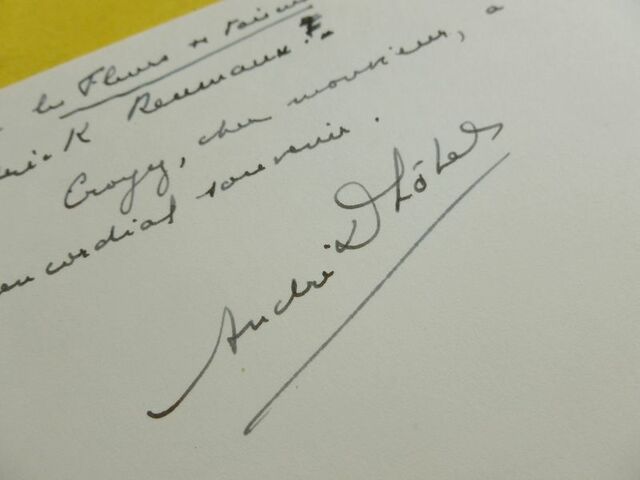 les Fleurs se taisent
rick Reumaux ?.
Croyez, cher monsieur, à
mon cordial souvenir.
André Dhôtel